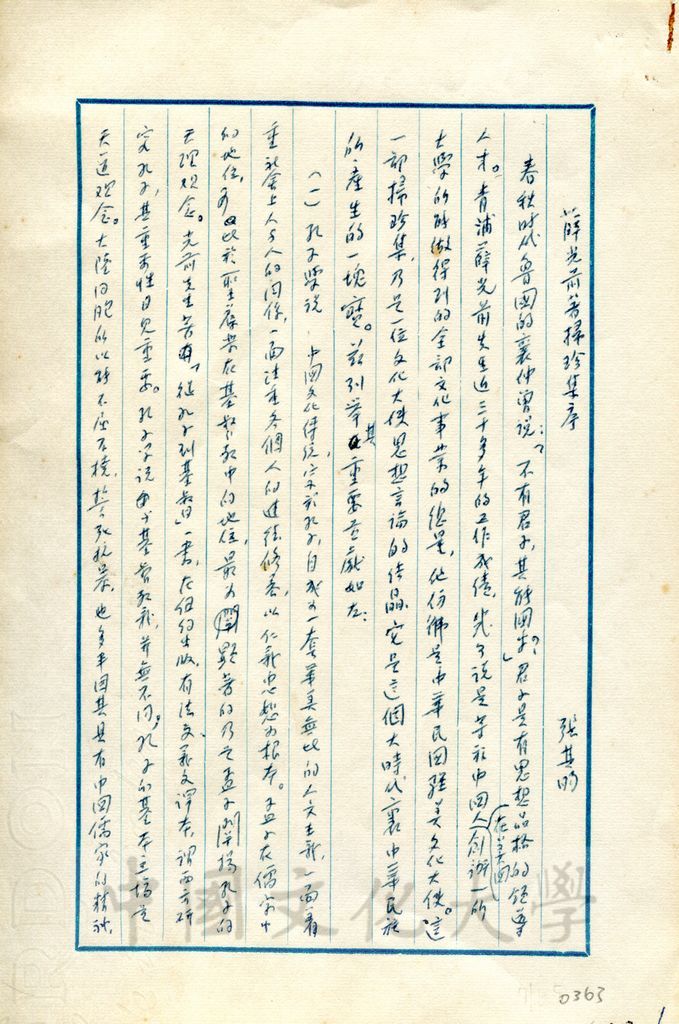 薛光前著掃珍集序
張其昀
春秋時代魯國的襄仲曾說：「不有君子，其能國乎？」君子是有思想品格的領導
人才。青浦薛光前先生近三十多年的工作成績，幾可說是等於中國人(在美國)創辦一所
大學的所做得到的全部文化事業的總量，他彷彿是中華民國駐美文化大使。這
一部掃珍集，乃是一位文化大使思想言論的結晶，實是這個大時代裏中華民族
所產生的一塊寶。茲列舉其重要貢獻如左：
(一)孔子學說 中國文化傳統，宗於孔子，自成為一套華美無比的人文主義，一面看
重社會上人與人的關係，一面注重各個人的進德修養，以仁義忠恕為根本。孟子在儒家中
的地位，可比於聖保羅在基督教中的地位，最為顯著的乃是孟子闡揚孔子的
天理觀念。光前先生著有「從孔子到基督」一書，在紐約出版，有法文、義文譯本，謂西方研
究孔子，其重要性日見重要。孔子學說與基督教義，並無不同，孔子的基本主場是
天道觀念。大陸同胞所以能不屈不撓，誓死抗暴，也多半因其具有中國儒家的精神，
0363
中國文化大學